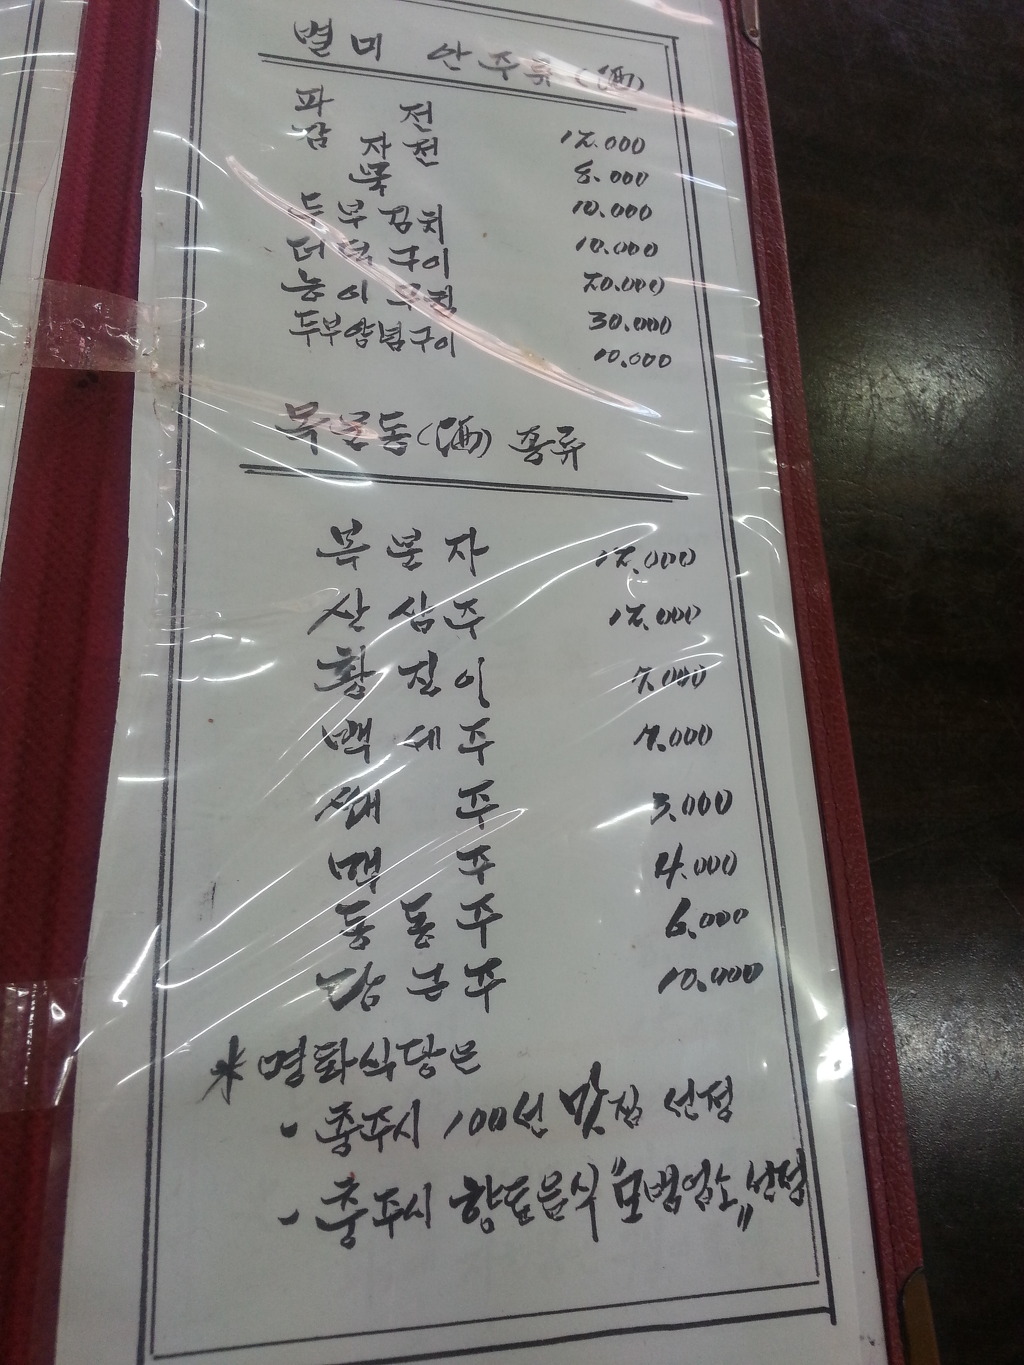 별미 안주류(酒)
파 전 12.000
감 자 전 8.000
묵 10.000
두부김치 10.000
더덕구이 20.000
능이무침 30.000
두부양념구이 10.000
(酒) 종류
복분자 12.000
산삼주 12.000
황진이 7.000
백세주 7.000
주 3.000
맥 주 4.000
동동주 6.000
담금주 10.000
※ 명화식당은
- 충주시 100선 맛집 선정
- 충주시 향토음식 "모범업소" 선정